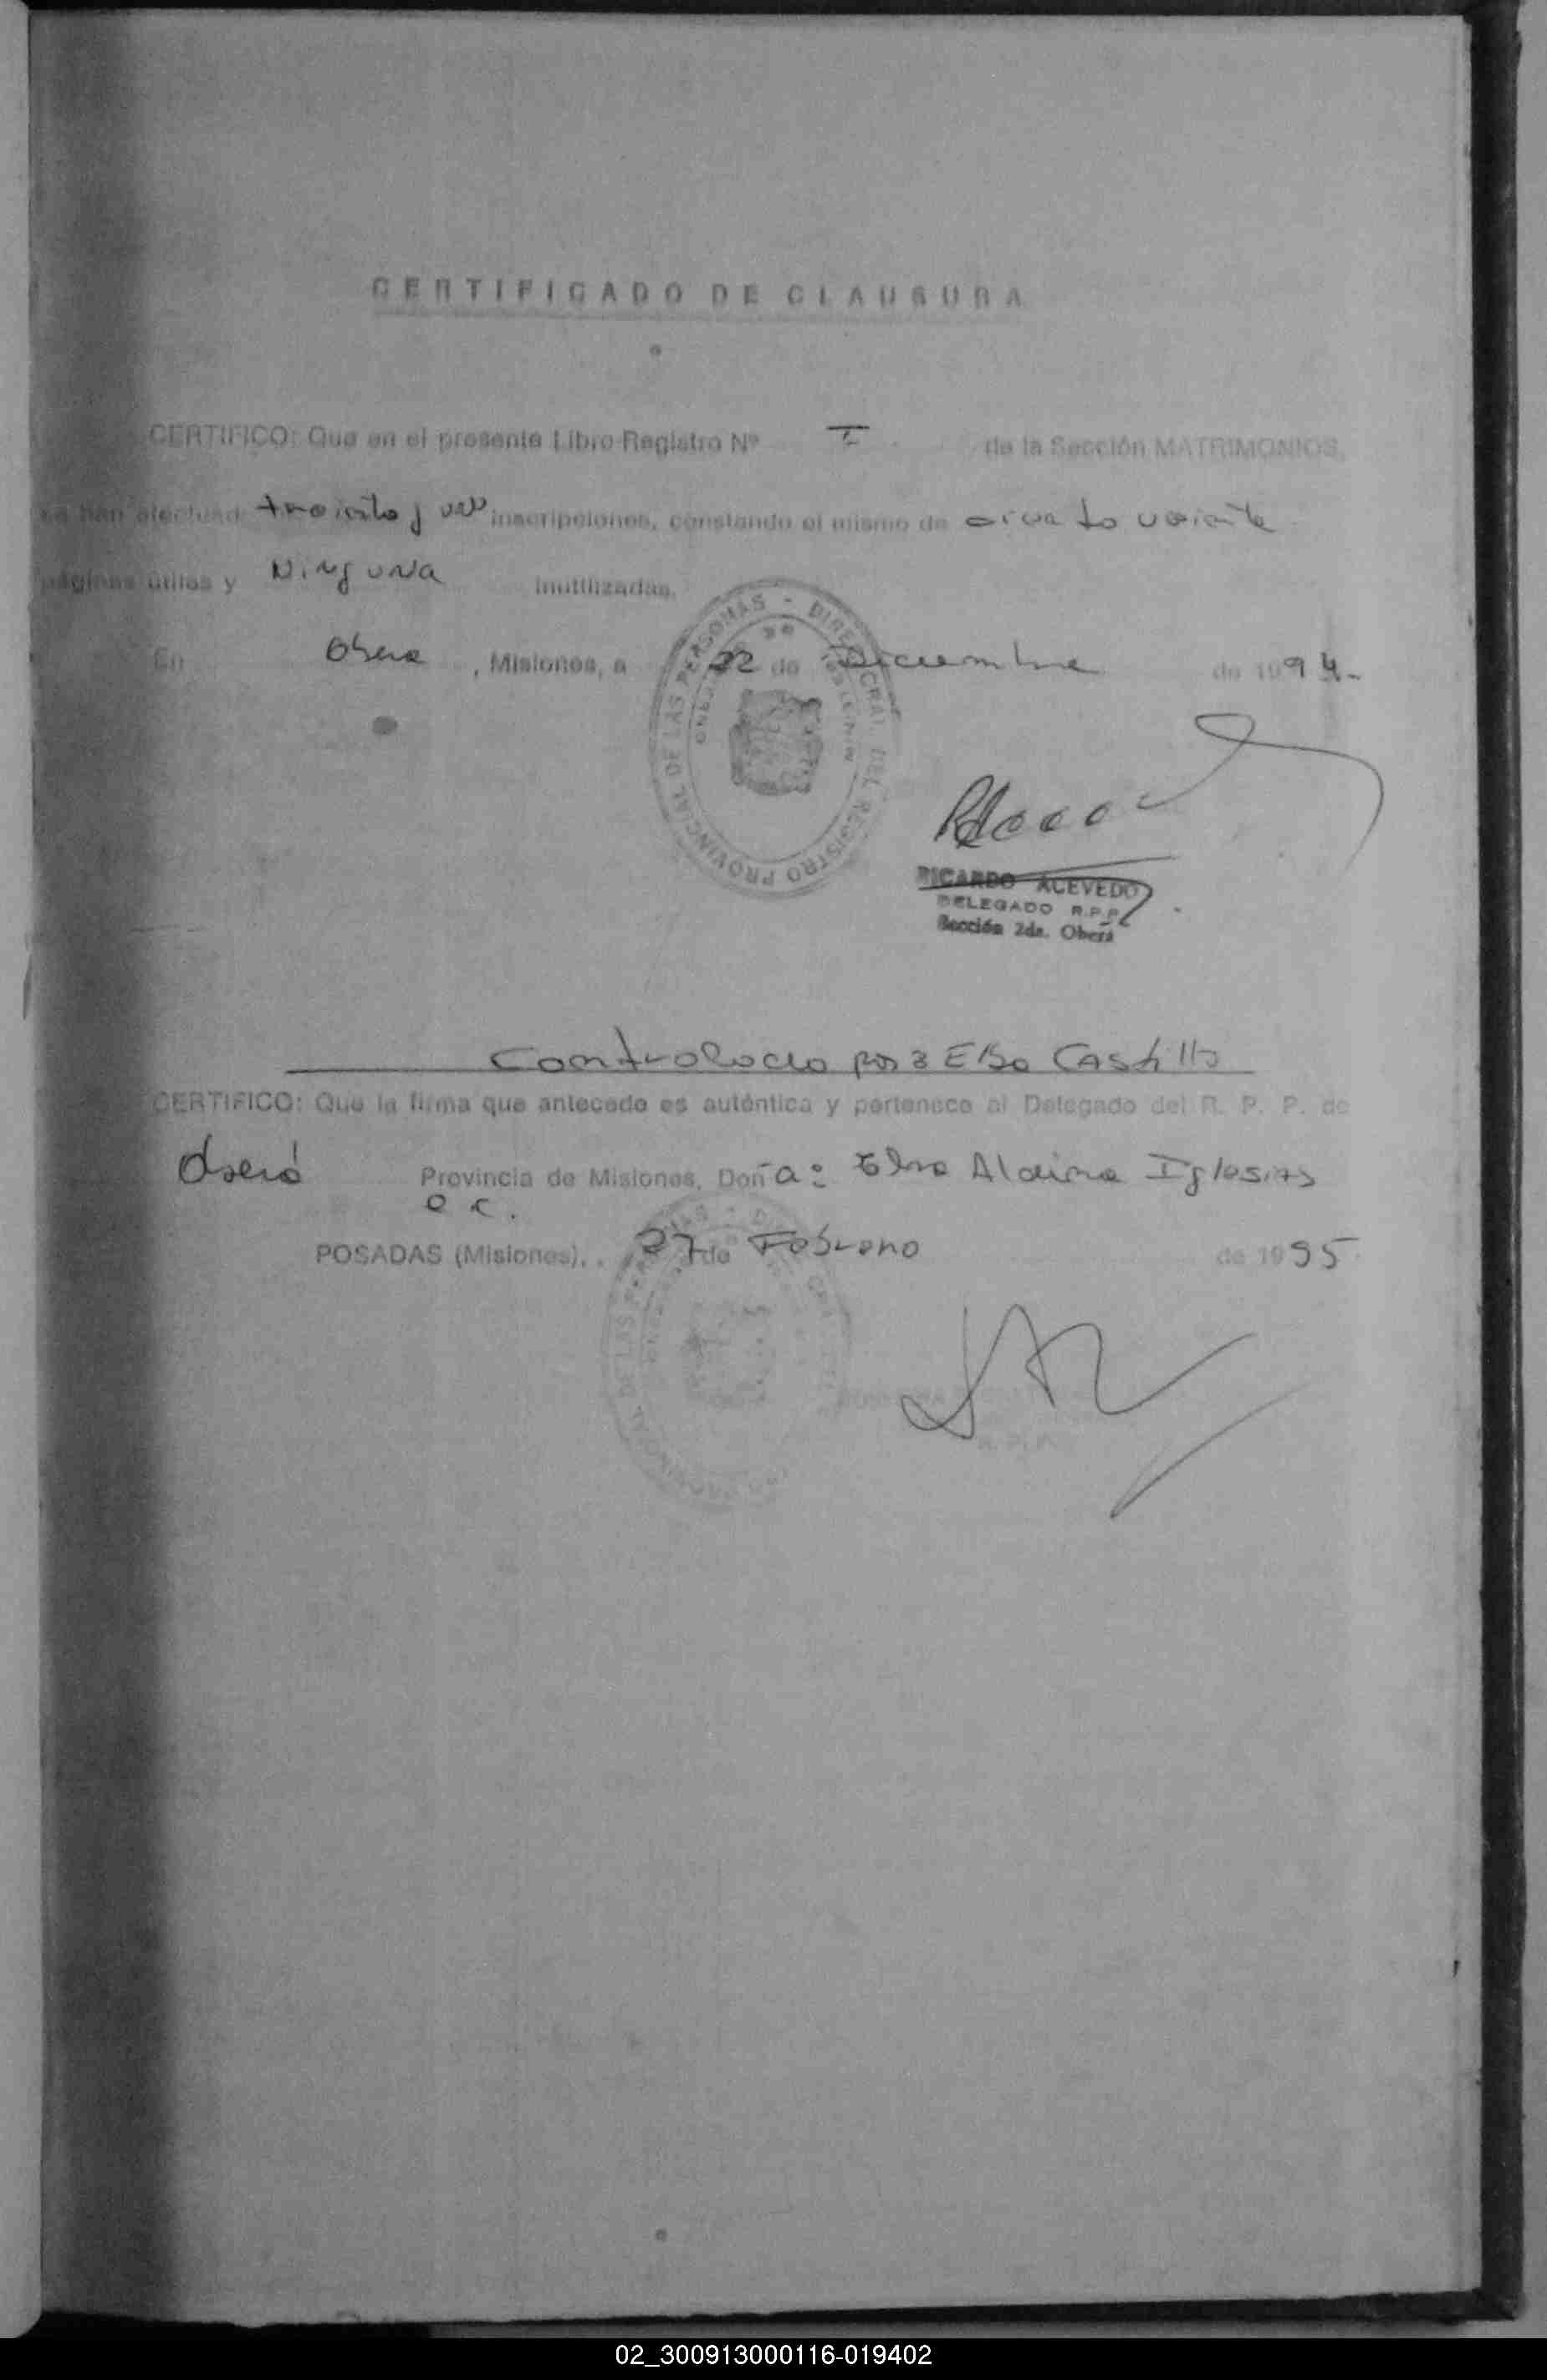 CERTIFICADO DE CLAUSURA
CERTIFICO: Que en el presente Libro Registro Nº I de la Sección MATRIMONIOS,
se han efectuado inscripciones, constando el mismo de
páginas útiles y Ninguna inutilizadas.
En Obera, Misiones, a 22 de Diciembre de 1994.-
DIREC. GRAL. DEL REGISTRO PROVINCIAL DE LAS PERSONAS -
RICARDO ACEVEDO
DELEGADO R.P.P.
Sección 2da. Oberá
Controlado por: Elso Castillo
CERTIFICO: Que la firma que antecede es auténtica y pertenece al Delegado del R. P. P. de
Oberá Provincia de Misiones, Doña: Aldina Iglesias
e c.
POSADAS (Misiones), 27 de Febrero de 1995